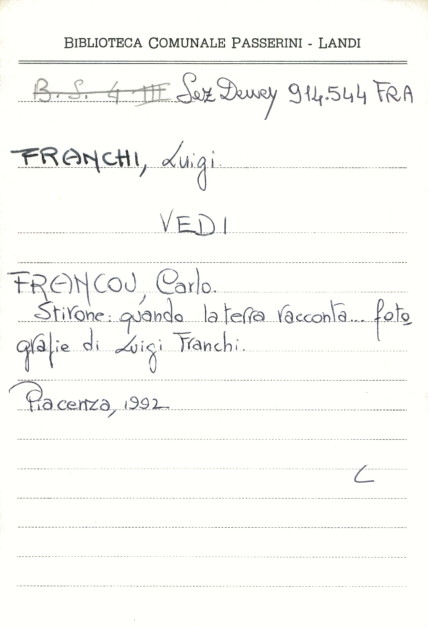 BIBLIOTECA COMUNALE PASSERINI - LANDI
B. S. 4 III Sez Dewey 914.544 FRA
FRANCHI, Luigi
VEDI
FRANCOU, Carlo.
Stirone: quando la terra racconta... foto
grafie di Luigi Franchi.
Piacenza, 1992
C